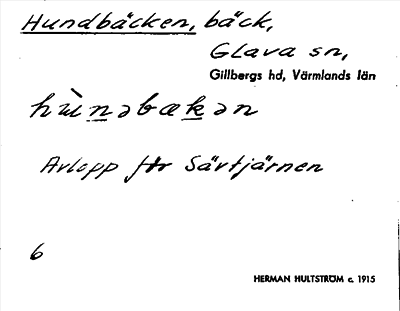 Hundbäcken, bäck,
Glava sn,
Gillbergs hd, Värmlands län
hùnəbækən
Avlopp för Sävtjärnen
6
HERMAN HULTSTRÖM c. 1915